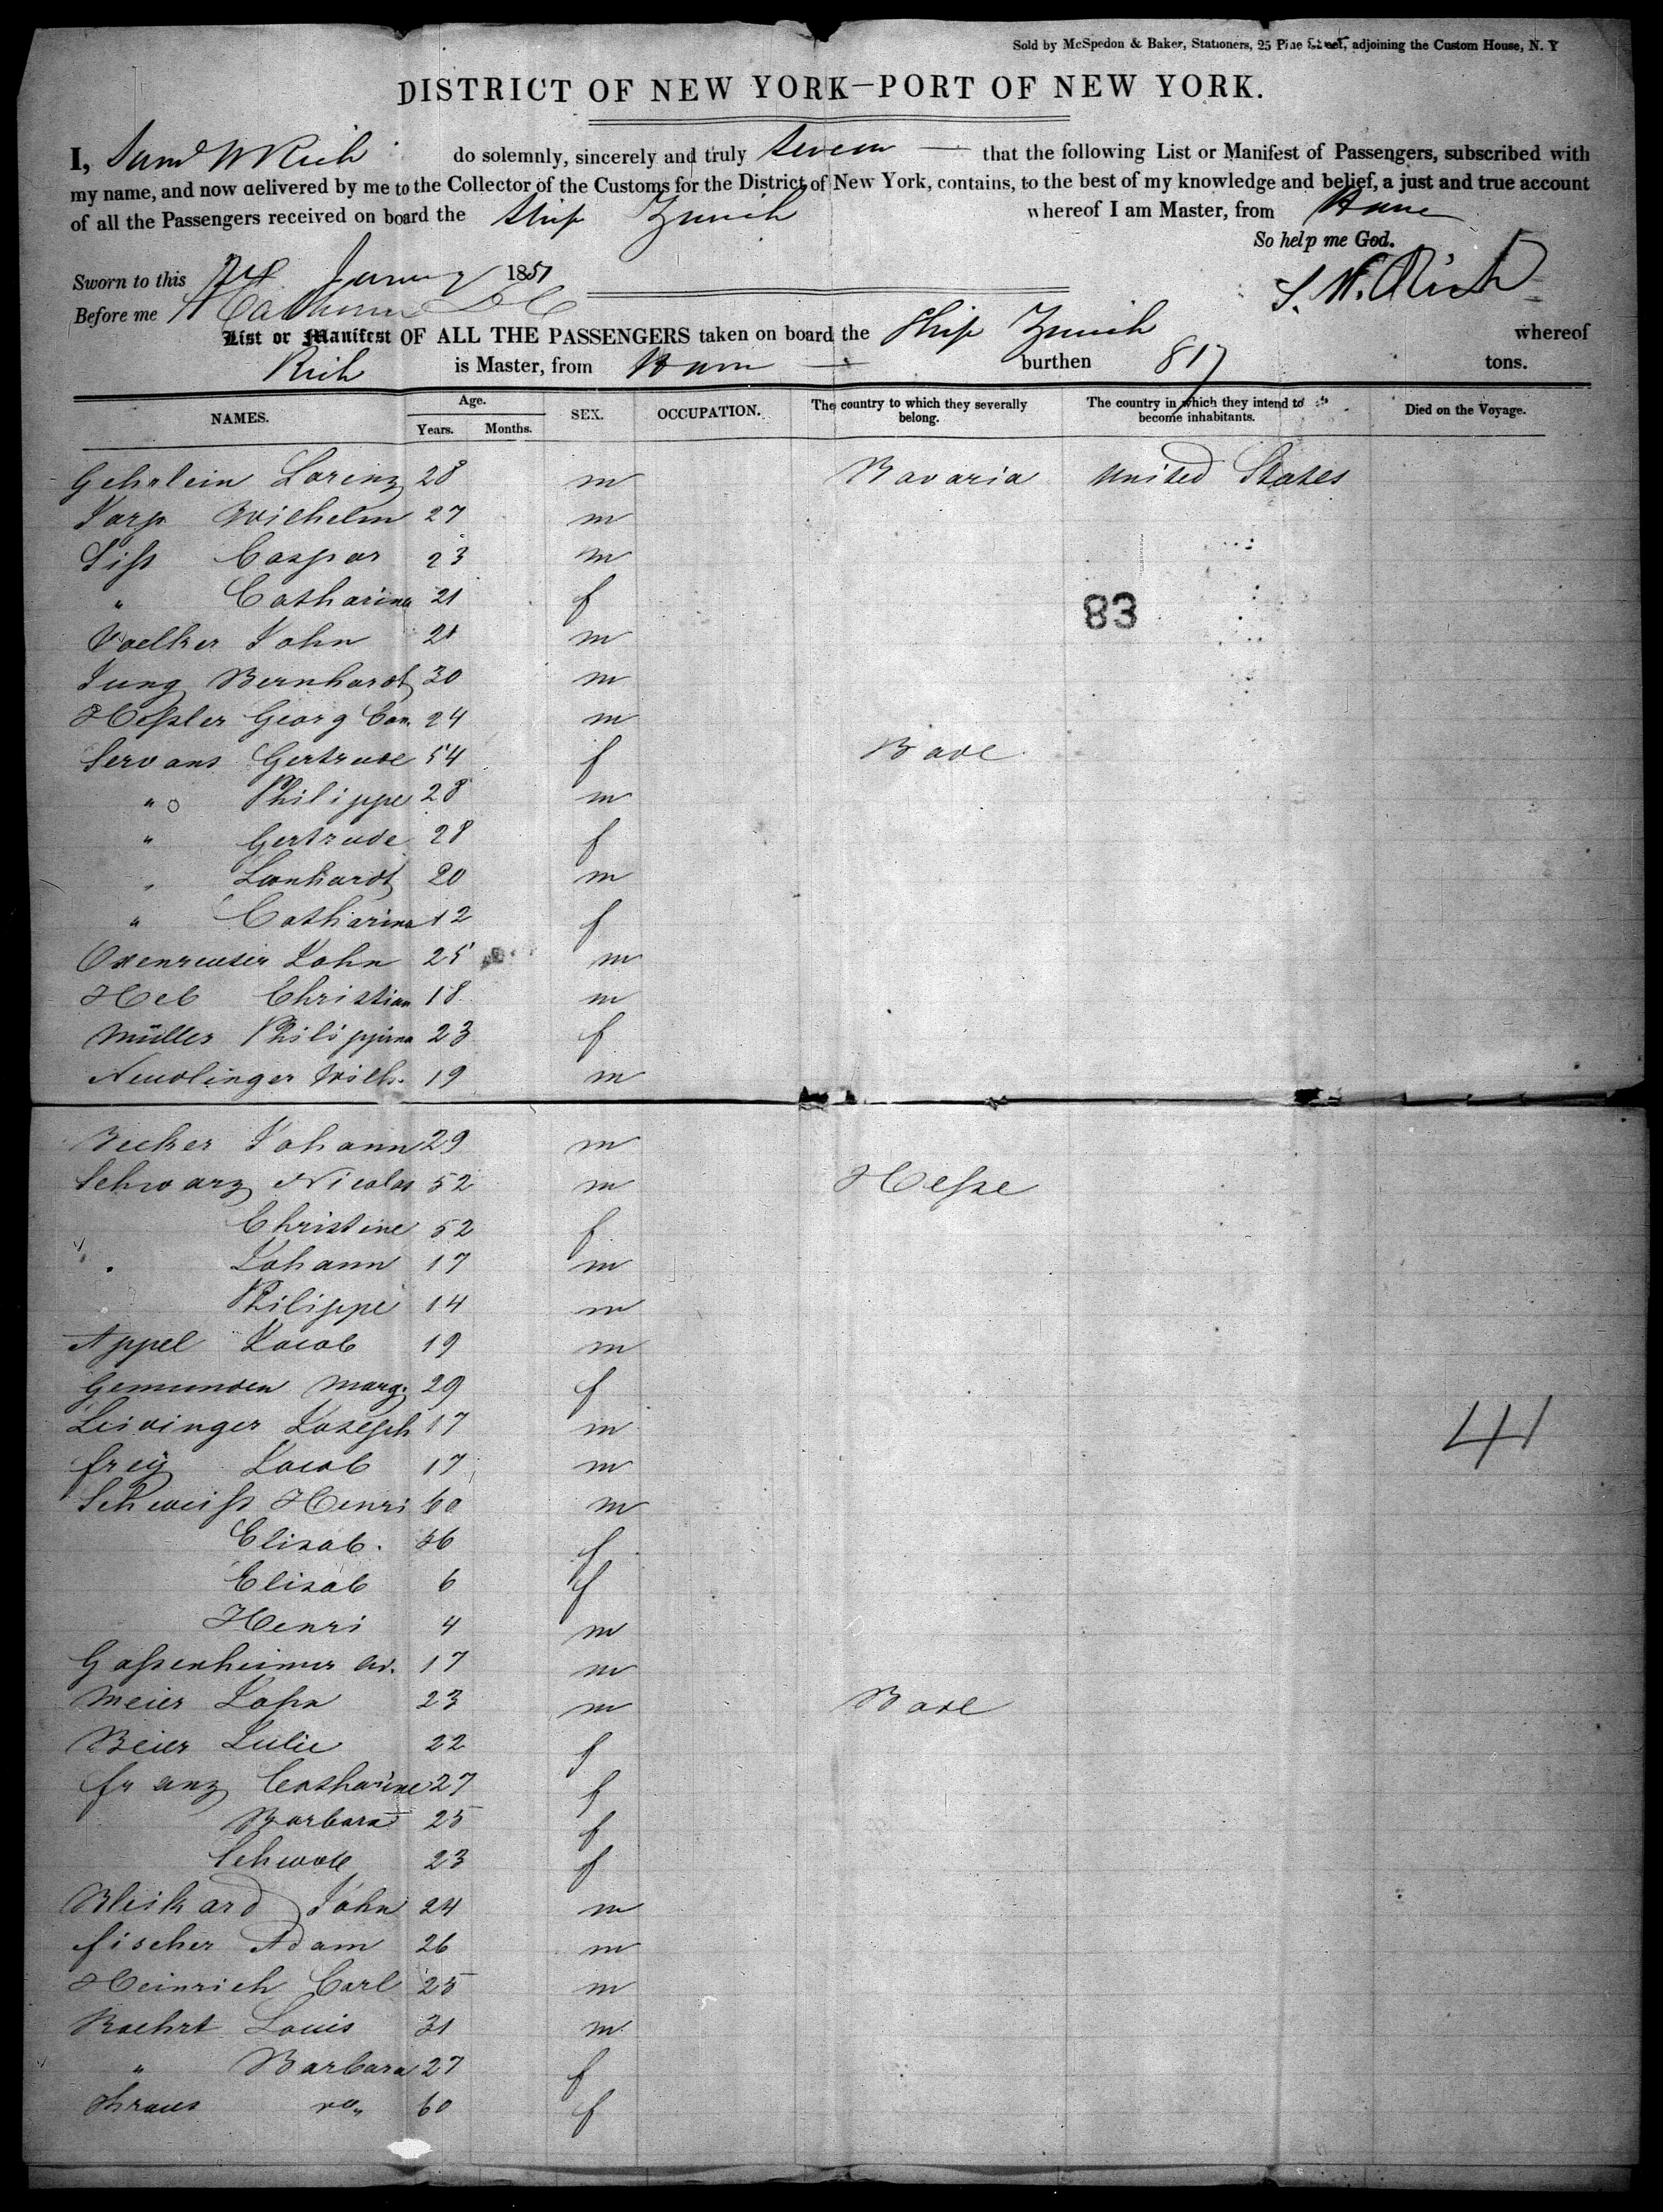 Sold by McSpedon & Baker, Stationers, 25 Pine Street, adjoining the Custom House, N. Y
DISTRICT OF NEW YORK—PORT OF NEW YORK.
I, Saml W Rich do solemnly, sincerely and truly swear — that the following List or Manifest of Passengers, subscribed with
my name, and now delivered by me to the Collector of the Customs for the District of New York, contains, to the best of my knowledge and belief, a just and true account
of all the Passengers received on board the Ship Zurich whereof I am Master, from Havre
So help me God.
Sworn to this 24 January 1851
S. W. Rich
Before me
List or Manifest OF ALL THE PASSENGERS taken on board the Ship Zurich whereof
Rich is Master, from Havre — burthen 817 tons.
NAMES. Age. Years. Months. SEX. OCCUPATION. The country to which they severally belong. The country in which they intend to become inhabitants. Died on the Voyage.
Gehrlein Lorenz 28 m Bavaria United States
Jarp Wilhelm 27 m
Siſs Caspar 23 m
" Catharina 21 f
83
Voelker John 21 m
Jung Bernhardt 30 m
Heſsler Georg Con. 24 m
Servans Gertrude 54 f Bade
" Philippe 28 m
" Gertrude 28 f
" Leonhardt 20 m
" Catharina 12 f
Oxenreuter John 25 m
Heb Christian 18 m
Müller Philippina 23 f
Neudlinger Wilh. 19 m
Becker Johann 29 m
Schwarz Nicolas 52 m Heſse
Christine 52 f
Johann 17 m
Philippe 14 m
Appel Jacob 19 m
Gemunden Marg. 29 f
Leivinger Joseph 17 m
41
Frey Jacob 17 m
Schweiſs Henri 60 m
Elisab. 36 f
Elisab 6 f
Henri 4 m
Gaſsenheimer 17 m
Meier John 23 m Bade
Beier Julie 22 f
Franz Catharine 27 f
Barbara 25 f
23 f
Bleikard John 24 m
Fischer Adam 26 m
Heinrich Carl 25 m
Roehrt Louis 31 m
" Barbara 27 f
Kraus 60 f